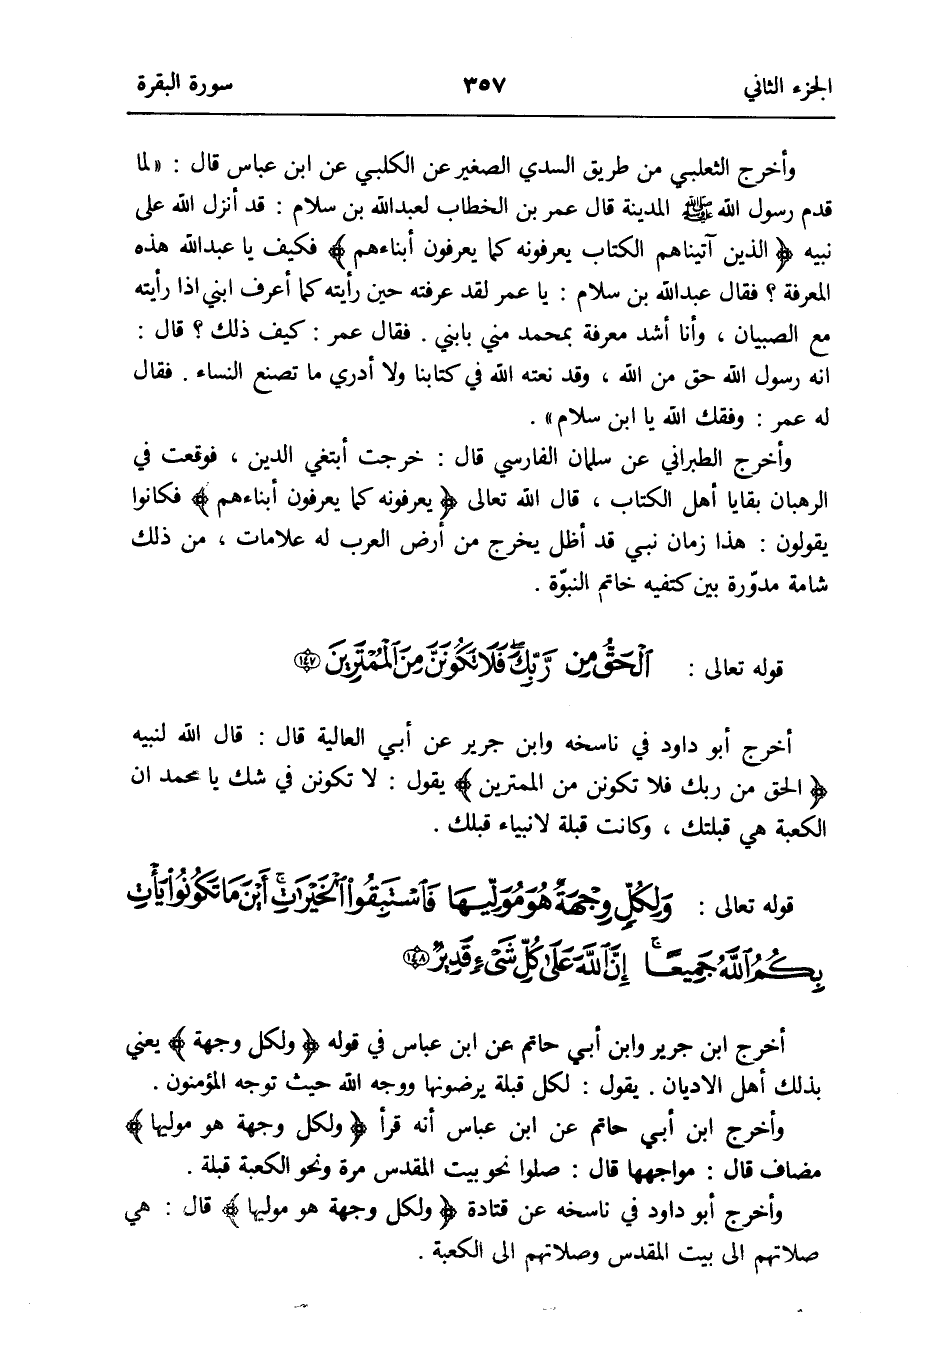 الجزء الثاني ٣٥٧ سورة البقرة
وأخرج الثعلبي من طريق السدي الصغير عن الكلبي عن ابن عباس قال : «لما
قدم رسول الله ﷺ المدينة قال عمر بن الخطاب لعبدالله بن سلام : قد أنزل الله على
نبيه ﴿ الذين آتيناهم الكتاب يعرفونه كما يعرفون أبناءهم ﴾ فكيف يا عبدالله هذه
المعرفة ؟ فقال عبدالله بن سلام : يا عمر لقد عرفته حين رأيته كما أعرف ابني اذا رأيته
مع الصبيان ، وأنا أشد معرفة بمحمد مني بابني . فقال عمر : كيف ذلك ؟ قال :
انه رسول الله حق من الله ، وقد نعته الله في كتابنا ولا أدري ما تصنع النساء . فقال
له عمر : وفقك الله يا ابن سلام» .
وأخرج الطبراني عن سلمان الفارسي قال : خرجت أبتغي الدين ، فوقعت في
الرهبان بقايا أهل الكتاب ، قال الله تعالى ﴿ يعرفونه كما يعرفون أبناءهم ﴾ فكانوا
يقولون : هذا زمان نبي قد أظل يخرج من أرض العرب له علامات ، من ذلك
شامة مدوّرة بين كتفيه خاتم النبوّة .
قوله تعالى : ٱلۡحَقُّ مِن رَّبِّكَ فَلَا تَكُونَنَّ مِنَ ٱلۡمُمۡتَرِينَ ١٤٧
أخرج أبو داود في ناسخه وابن جرير عن أبي العالية قال : قال الله لنبيه
﴿ الحق من ربك فلا تكونن من الممترين ﴾ يقول : لا تكونن في شك يا محمد ان
الكعبة هي قبلتك ، وكانت قبلة لانبياء قبلك .
قوله تعالى : وَلِكُلّٖ وِجۡهَةٌ هُوَ مُوَلِّيهَا فَٱسۡتَبِقُواْ ٱلۡخَيۡرَٰتِۚ أَيۡنَ مَا تَكُونُواْ يَأۡتِ
بِكُمُ ٱللَّهُ جَمِيعًاۚ إِنَّ ٱللَّهَ عَلَىٰ كُلِّ شَيۡءٖ قَدِيرٞ ١٤٨
أخرج ابن جرير وابن أبي حاتم عن ابن عباس في قوله ﴿ ولكل وجهة ﴾ يعني
بذلك أهل الاديان . يقول : لكل قبلة يرضونها ووجه الله حيث توجه المؤمنون .
وأخرج ابن أبي حاتم عن ابن عباس أنه قرأ ﴿ ولكل وجهة هو موليها ﴾
مضاف قال : مواجهها قال : صلوا نحو بيت المقدس مرة ونحو الكعبة قبلة .
وأخرج أبو داود في ناسخه عن قتادة ﴿ ولكل وجهة هو موليها ﴾ قال : هي
صلاتهم الى بيت المقدس وصلاتهم الى الكعبة .